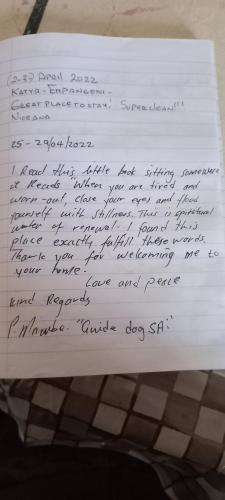 (2-3) April 2022
Katya - Empangeni -
Great place to stay! Superclean!!!
25 - 29/04/2022
I Read this little book sitting somewhere
it Reads When you are tired and
worn-out, close your eyes and flood
yourself with stillness. This is spiritual
water of renewal. I found this
place exactly fulfill these words.
Thank you for welcoming me to
your home.
Love and peace
kind Regards
"Guide dog SA."